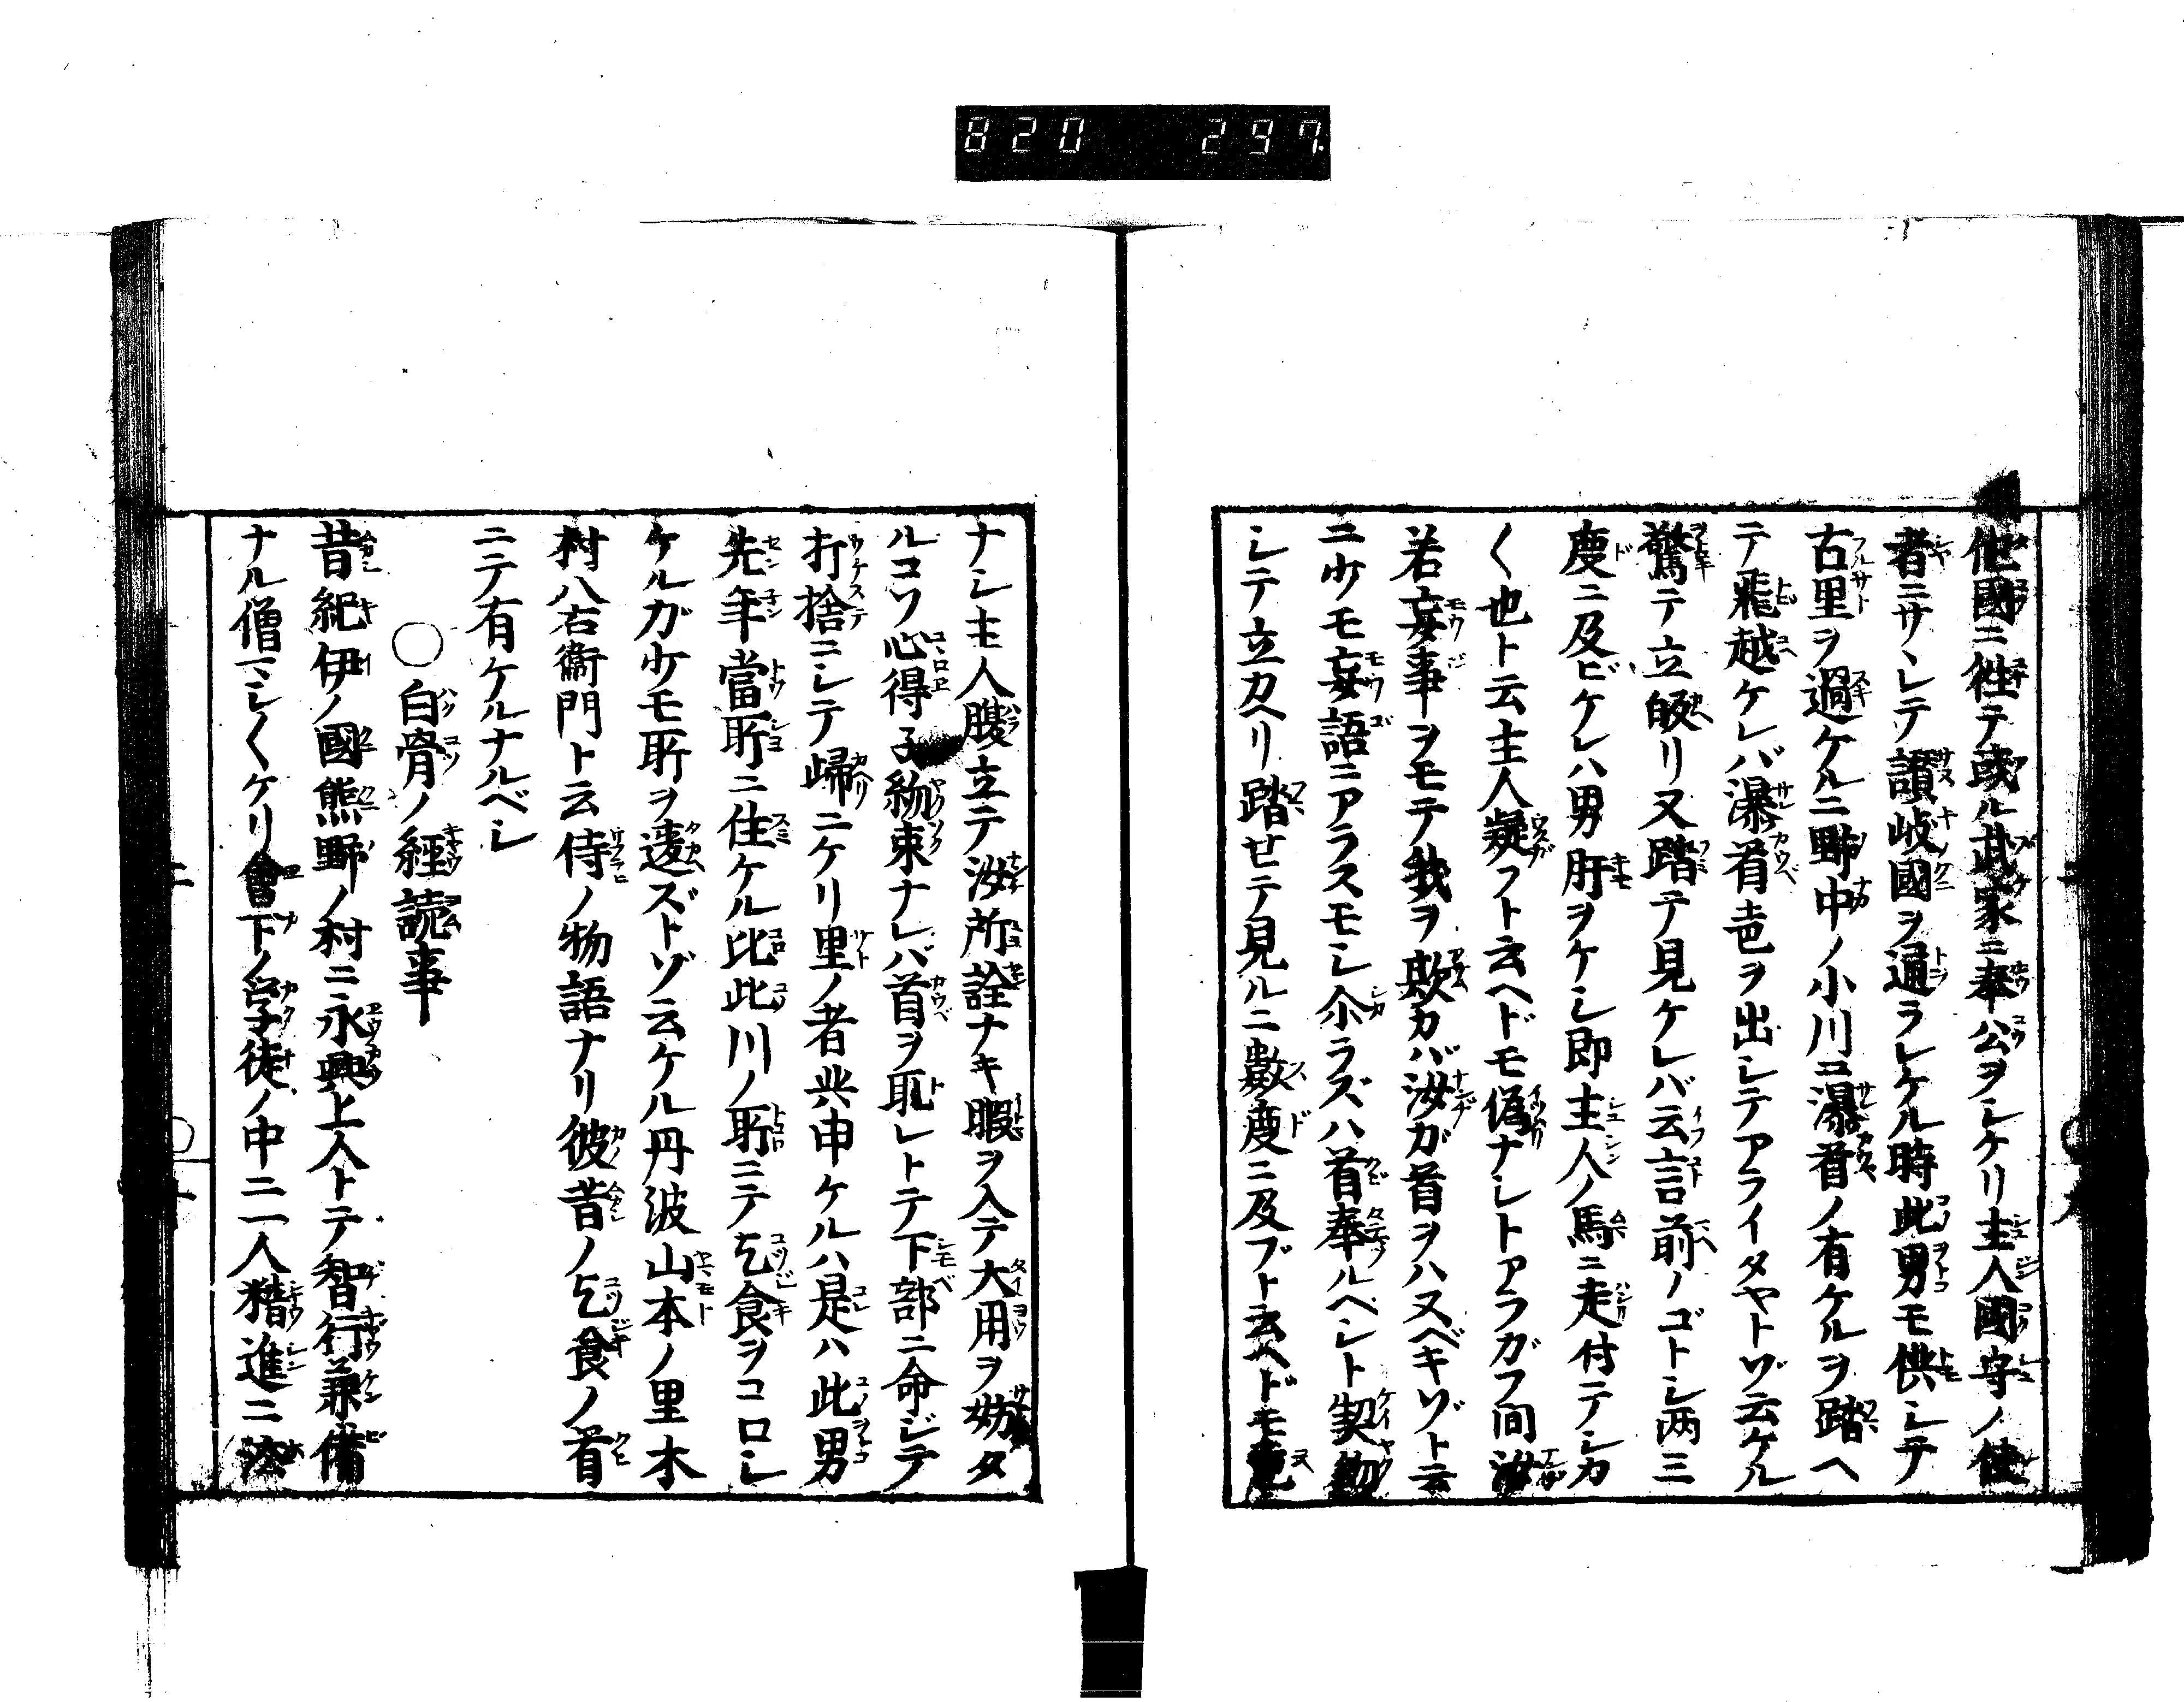 820 297
他國ニ徃テ或ル武家ニ奉公ヲシケリ主人國守ノ使
者ニサシテ讃岐國ヲ通ラレケル時此男モ供シテ
古里ヲ過ケルニ野中ノ小川ニ瀑首ノ有ケルヲ踏ヘ
テ飛越ケレバ瀑首声ヲ出シテアライタヤトゾ云ケル
驚テ立皈リ又踏テ見ケレバ云言前ノゴトシ両三
度ニ及ビケレハ男肝ヲケシ即主人ノ馬ニ走付テシカ
〱也ト云主人疑フト云ヘドモ偽ナシトアラガフ間汝
若妄事ヲモテ我ヲ欺カバ汝ガ首ヲハヌベキゾト云
ニ少モ妄語ニアラスモシ尒ラズハ首奉ルヘシト契約
シテ立カヘリ踏セテ見ルニ數度ニ及ブト云ヘドモ
ナシ主人腹立テ汝所詮ナキ暇ヲ入テ大用ヲ妨タ
ルコソ心得子約束ナレバ首ヲ恥レトテ下部ニ命ジテ
打捨ニシテ歸ニケリ里ノ者共申ケルハ是ハ此男
先年當所ニ住ケル比此川ノ所ニテ乞食ヲコロシ
ケルガ少モ所ヲ違ズトゾ云ケル丹波山本ノ里木
村八右衛門ト云侍ノ物語ナリ彼昔ノ乞食ノ首
ニテ有ケルナルベシ
○白骨ノ經読事
昔紀伊ノ國熊野ノ村ニ永興上人トテ智行兼備
ナル僧マシ〱ケリ會下ノ学徒ノ中ニ一人精進ニ法